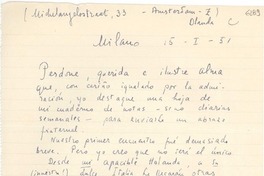 (Michelangelostraat, 33 - Amsterdam - Z)
Olanda
Milano 15 - I - 51
Perdone, querida e ilustre alma
que, con cariño igualado por la admi-
ración, yo destaque una hoja de
mi cuaderno de notas - escribo diarios
semanales - para enviarle un abrazo
fraternal.
Nuestro primer encuentro fué demasiado
breve. Pero yo creo que no será el único
Desde mi apacible Holanda, a la
dulce Italia he llevado otras